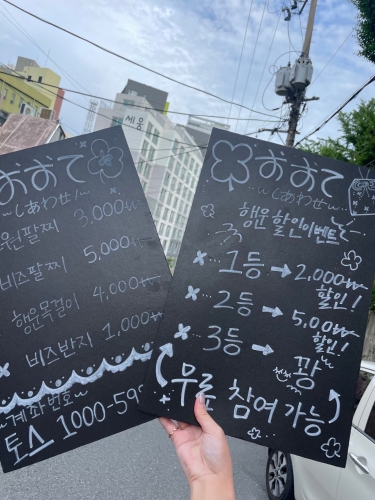 세웅
おおて
~しあわせ~!
운팔찌 3,000₩
비즈팔찌 5,000₩
행운목걸이 4,000₩
비즈반지 1,000₩
~계좌번호~
토스 1000-59
おおて
~しあわせ~
행운 할인이벤트
1등 → 2,000₩
할인!
2등 → 5,00₩
할인!
3등 → 꽝
무료 참여 가능